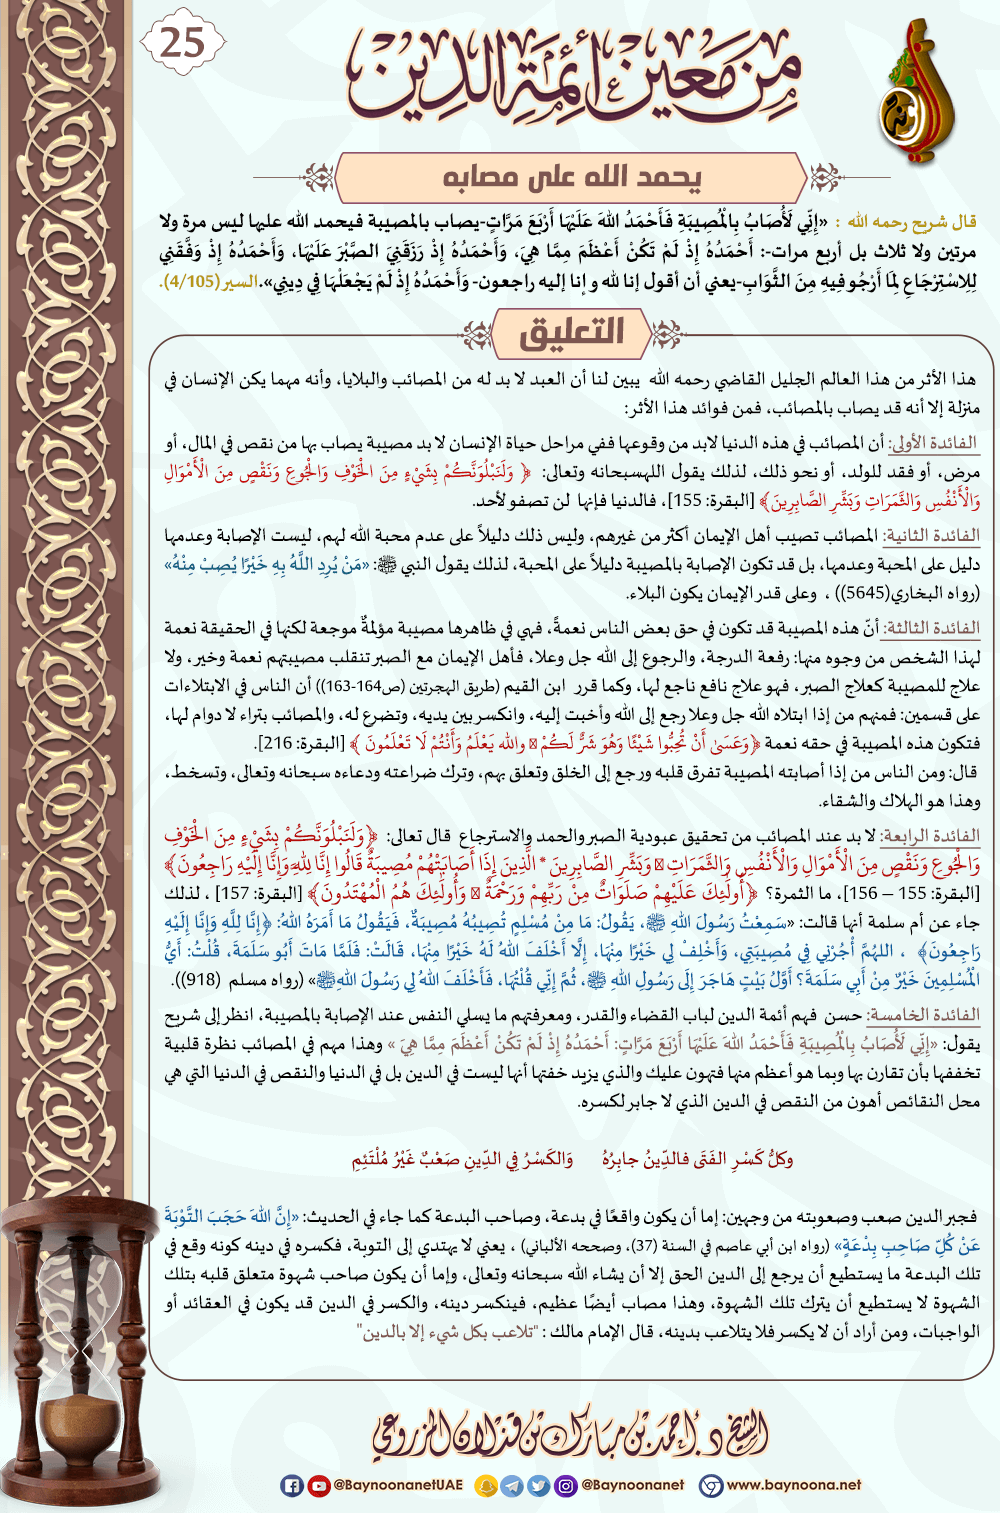 25
من معين أئمة الدين
يحمد الله على مصابه
قال شريح رحمه الله : «إِنِّي لَأُصَابُ بِالْمُصِيبَةِ فَأَحْمَدُ اللهَ عَلَيْهَا أَرْبَعَ مَرَّاتٍ-يصاب بالمصيبة فيحمد الله عليها ليس مرة ولا
مرتين ولا ثلاث بل أربع مرات-: أَحْمَدُهُ إِذْ لَمْ تَكُنْ أَعْظَمَ مِمَّا هِيَ، وَأَحْمَدُهُ إِذْ رَزَقَنِيَ الصَّبْرَ عَلَيْهَا، وَأَحْمَدُهُ إِذْ وَفَّقَنِي
لِلِاسْتِرْجَاعِ لِمَا أَرْجُو فِيهِ مِنَ الثَّوَابِ-يعني أن أقول إنا لله و إنا إليه راجعون- وَأَحْمَدُهُ إِذْ لَمْ يَجْعَلْهَا فِي دِينِي».السير(4/105).
التعليق
هذا الأثر من هذا العالم الجليل القاضي رحمه الله يبين لنا أن العبد لا بد له من المصائب والبلايا، وأنه مهما يكن الإنسان في
منزلة إلا أنه قد يصاب بالمصائب، فمن فوائد هذا الأثر:
الفائدة الأولى: أن المصائب في هذه الدنيا لابد من وقوعها ففي مراحل حياة الإنسان لا بد مصيبة يصاب بها من نقص في المال، أو
مرض، أو فقد للولد، أو نحو ذلك، لذلك يقول اللهسبحانه وتعالى: ﴿ وَلَنَبْلُوَنَّكُمْ بِشَيْءٍ مِنَ الْخَوْفِ وَالْجُوعِ وَنَقْصٍ مِنَ الْأَمْوَالِ
وَالْأَنْفُسِ وَالثَّمَرَاتِ وَبَشِّرِ الصَّابِرِينَ﴾ [البقرة: 155]، فالدنيا فإنها لن تصفو لأحد.
الفائدة الثانية: المصائب تصيب أهل الإيمان أكثر من غيرهم، وليس ذلك دليلاً على عدم محبة الله لهم، ليست الإصابة وعدمها
دليل على المحبة وعدمها، بل قد تكون الإصابة بالمصيبة دليلاً على المحبة، لذلك يقول النبي ﷺ: «مَنْ يُرِدِ اللَّهُ بِهِ خَيْرًا يُصِبْ مِنْهُ»
(رواه البخاري(5645)) ، وعلى قدر الإيمان يكون البلاء.
الفائدة الثالثة: أنّ هذه المصيبة قد تكون في حق بعض الناس نعمةً، فهي في ظاهرها مصيبة مؤلمةٌ موجعة لكنها في الحقيقة نعمة
لهذا الشخص من وجوه منها: رفعة الدرجة، والرجوع إلى الله جل وعلا، فأهل الإيمان مع الصبر تنقلب مصيبتهم نعمة وخير، ولا
علاج للمصيبة كعلاج الصبر، فهو علاج نافع ناجع لها، وكما قرر ابن القيم (طريق الهجرتين (ص164-163)) أن الناس في الابتلاءات
على قسمين: فمنهم من إذا ابتلاه الله جل وعلا رجع إلى الله وأخبت إليه، وانكسر بين يديه، وتضرع له، والمصائب بتراء لا دوام لها،
فتكون هذه المصيبة في حقه نعمة ﴿وَعَسَىٰ أَنْ تُحِبُّوا شَيْئًا وَهُوَ شَرٌّ لَكُمْ والله يَعْلَمُ وَأَنْتُمْ لَا تَعْلَمُونَ ﴾ [البقرة: 216].
قال: ومن الناس من إذا أصابته المصيبة تفرق قلبه ورجع إلى الخلق وتعلق بهم، وترك ضراعته ودعاءه سبحانه وتعالى، وتسخط،
وهذا هو الهلاك والشقاء.
الفائدة الرابعة: لا بد عند المصائب من تحقيق عبودية الصبر والحمد والاسترجاع قال تعالى: ﴿وَلَنَبْلُوَنَّكُمْ بِشَيْءٍ مِنَ الْخَوْفِ
وَالْجُوعِ وَنَقْصٍ مِنَ الْأَمْوَالِ وَالْأَنْفُسِ وَالثَّمَرَاتِ وَبَشِّرِ الصَّابِرِينَ * الَّذِينَ إِذَا أَصَابَتْهُمْ مُصِيبَةٌ قَالُوا إِنَّا لِلَّهِ وَإِنَّا إِلَيْهِ رَاجِعُونَ﴾
[البقرة: 155 – 156]، ما الثمرة؟ ﴿أُولَئِكَ عَلَيْهِمْ صَلَوَاتٌ مِنْ رَبِّهِمْ وَرَحْمَةٌ وَأُولَئِكَ هُمُ الْمُهْتَدُونَ﴾ [البقرة: 157] ، لذلك
جاء عن أم سلمة أنها قالت: «سَمِعْتُ رَسُولَ اللهِ ﷺ، يَقُولُ: مَا مِنْ مُسْلِمٍ تُصِيبُهُ مُصِيبَةٌ، فَيَقُولُ مَا أَمَرَهُ اللهُ: ﴿إِنَّا لِلَّهِ وَإِنَّا إِلَيْهِ
رَاجِعُونَ﴾ ، اللهُمَّ أْجُرْنِي فِي مُصِيبَتِي، وَأَخْلِفْ لِي خَيْرًا مِنْهَا، إِلَّا أَخْلَفَ اللهُ لَهُ خَيْرًا مِنْهَا، قَالَتْ: فَلَمَّا مَاتَ أَبُو سَلَمَةَ، قُلْتُ: أَيُّ
الْمُسْلِمِينَ خَيْرٌ مِنْ أَبِي سَلَمَةَ؟ أَوَّلُ بَيْتٍ هَاجَرَ إِلَى رَسُولِ اللهِ ﷺ، ثُمَّ إِنِّي قُلْتُهَا، فَأَخْلَفَ اللهُ لِي رَسُولَ اللهِ ﷺ» (رواه مسلم (918)).
الفائدة الخامسة: حسن فهم أئمة الدين لباب القضاء والقدر، ومعرفتهم ما يسلي النفس عند الإصابة بالمصيبة، انظر إلى شريح
يقول: «إِنِّي لَأُصَابُ بِالْمُصِيبَةِ فَأَحْمَدُ اللهَ عَلَيْهَا أَرْبَعَ مَرَّاتٍ: أَحْمَدُهُ إِذْ لَمْ تَكُنْ أَعْظَمَ مِمَّا هِيَ » وهذا مهم في المصائب نظرة قلبية
تخففها بأن تقارن بها وبما هو أعظم منها فتهون عليك والذي يزيد خفتها أنها ليست في الدين بل في الدنيا والنقص في الدنيا التي هي
محل النقائص أهون من النقص في الدين الذي لا جابر لكسره.
وكلُّ كَسْرِ الفَتَى فالدِّينُ جابِرُهُ والكَسْرُ فِي الدِّينِ صَعْبٌ غَيْرُ مُلْتَئِمِ
فجبر الدين صعب وصعوبته من وجهين: إما أن يكون واقعًا في بدعة، وصاحب البدعة كما جاء في الحديث: «إِنَّ اللهَ حَجَبَ التَّوْبَةَ
عَنْ كُلِّ صَاحِبِ بِدْعَةٍ» (رواه ابن أبي عاصم في السنة (37)، وصححه الألباني) ، يعني لا يهتدي إلى التوبة، فكسره في دينه كونه وقع في
تلك البدعة ما يستطيع أن يرجع إلى الدين الحق إلا أن يشاء الله سبحانه وتعالى، وإما أن يكون صاحب شهوة متعلق قلبه بتلك
الشهوة لا يستطيع أن يترك تلك الشهوة، وهذا مصاب أيضًا عظيم، فينكسر دينه، والكسر في الدين قد يكون في العقائد أو
الواجبات، ومن أراد أن لا يكسر فلا يتلاعب بدينه، قال الإمام مالك : "تلاعب بكل شيء إلا بالدين"
الشيخ د. أحمد بن مبارك بن قذلان المزروعي
@BaynoonanetUAE @Baynoonanet www.baynoona.net